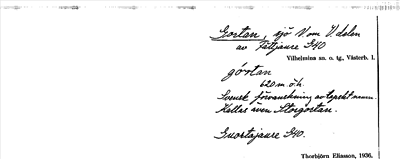 Gostan, sjö N om V. delen
av Fättjaure G40
Vilhelmina sn. o. tg., Västerb. l.
góstan
620 m ö.h.
Svensk förvanskning av lapskt namn.
Kallas även Storgostan.
Guortajaure G40.
Thorbjörn Eliasson, 1936.